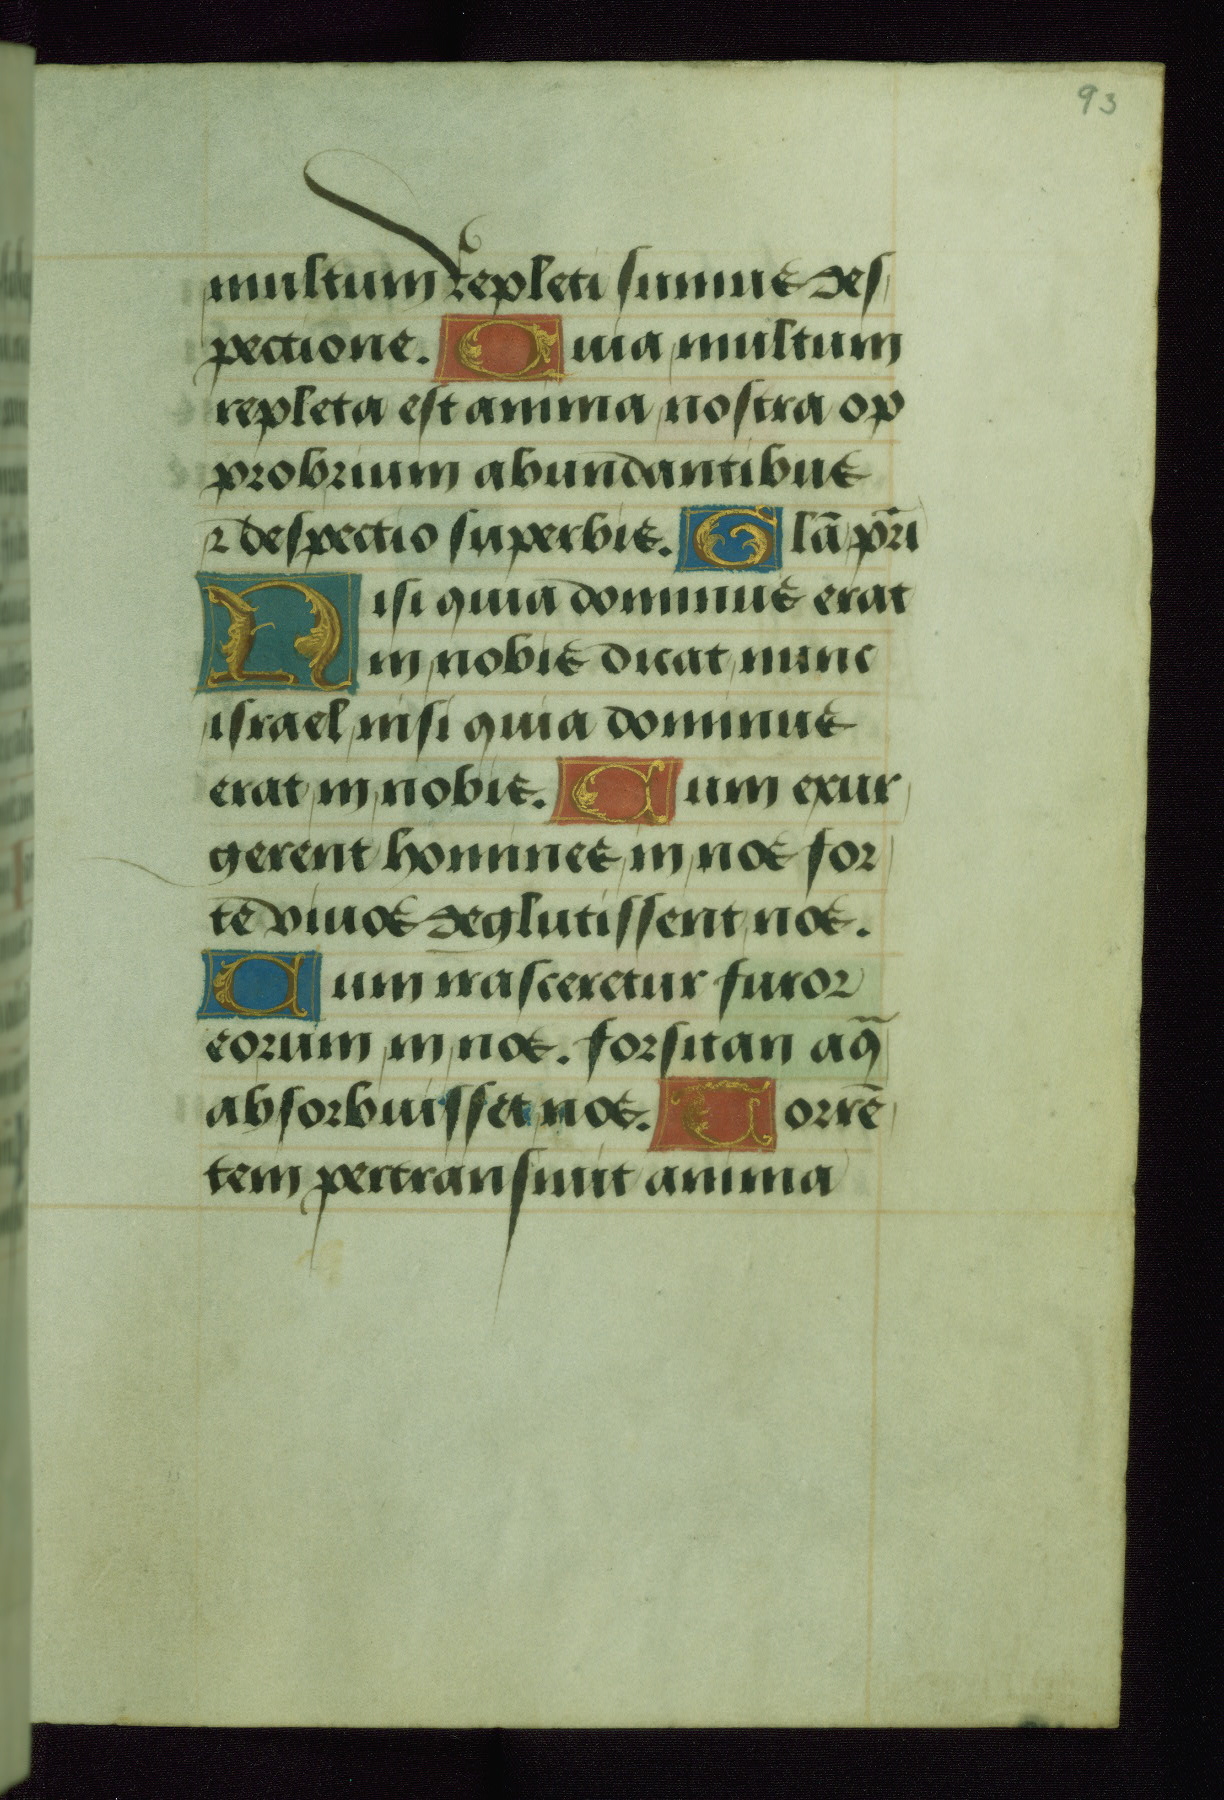 93
multum repleti sumus des
pectione. Quia multum
repleta est anima nostra op
probrium abundantibus
⁊ despectio superbis. Glã pr̃i
Nisi quia dominus erat
in nobis dicat nunc
israel nisi quia dominus
erat in nobis. Cum exur
gerent homines in nos for
te vivos deglutissent nos.
Cum irasceretur furor
eorum in nos. forsitan aq̃
absorbuisset nos. Torrẽ
tem pertransiuit anima